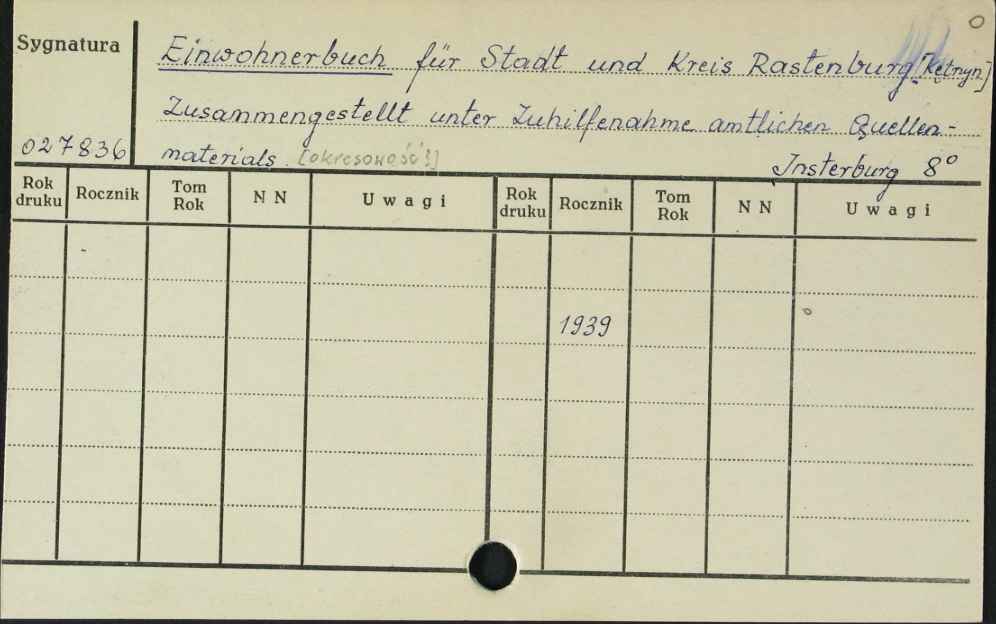 Sygnatura
Einwohnerbuch für Stadt und Kreis Rastenburg [Kętrzyn]
Zusammengestellt unter Zuhilfenahme amtlichen Quellen-
027836 materials. [okresowość?] Insterburg 8°
Rok druku Rocznik Tom Rok N N Uwagi Rok druku Rocznik Tom Rok N N Uwagi
1939